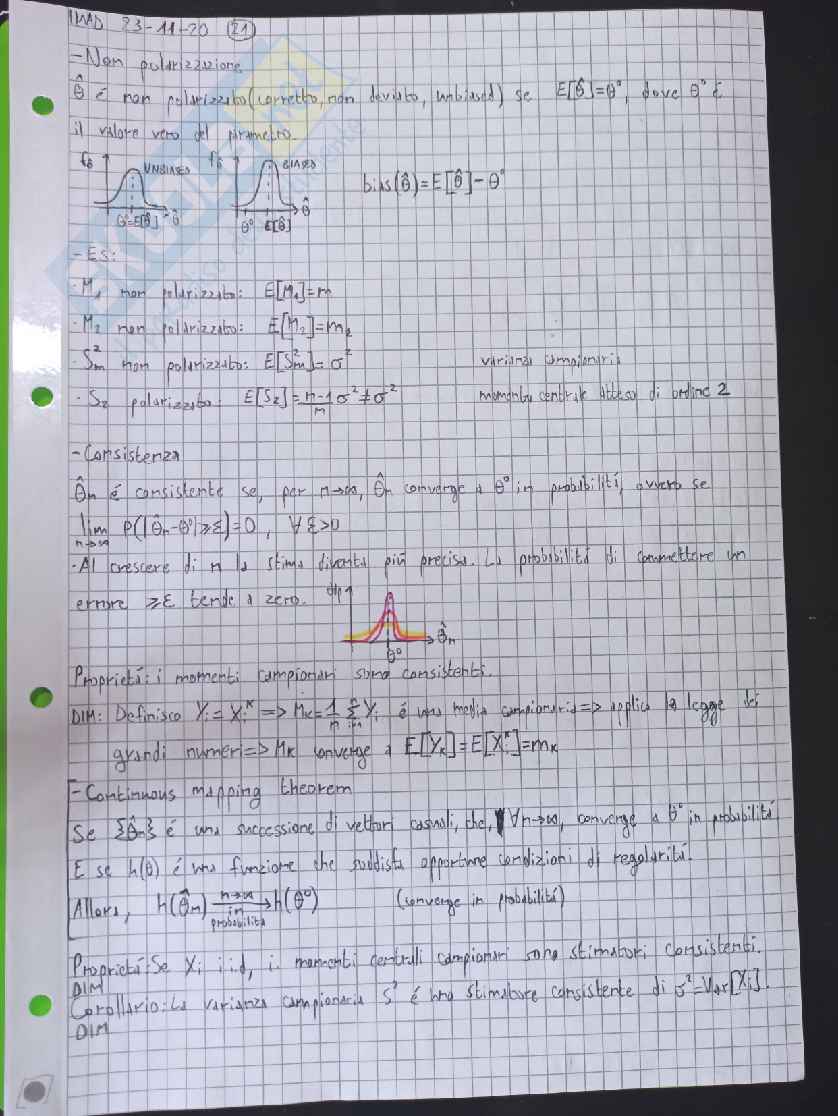 IMAD 23-11-20 (21)
- Non polarizzazione
θ̂ é non polarizzato (corretto, non deviato, unbiased) se E[θ̂]=θ°, dove θ° é
il valore vero del parametro.
fθ̂ UNBIASED fθ̂ BIASED
bias(θ̂)=E[θ̂]-θ°
θ°=E[θ̂] θ̂ θ° E[θ̂] θ̂
- ES:
· M₁ non polarizzato: E[M₁]=m
· M₂ non polarizzato: E[M₂]=m₂
· S²m non polarizzato: E[S²m]=σ² varianza campionaria
· S₂ polarizzato: E[S₂]=n-1/n σ²≠σ² momento centrale atteso di ordine 2
- Consistenza
θ̂n é consistente se, per n→∞, θ̂n converge a θ° in probabilitá, ovvero se
lim n→∞ P(|θ̂n-θ°|≥ε)=0, ∀ε>0
· Al crescere di n la stima diventa piú precisa. La probabilitá di commettere un
errore ≥ε tende a zero.
θ̂n
θ°
Proprietá: i momenti campionari sono consistenti.
DIM: Definisco Yi=Xiᴷ => Mk=1/n Σ Yi é una media campionaria => applico la legge dei
grandi numeri => Mk converge a E[Yk]=E[Xiᴷ]=mk
- Continuous mapping theorem
Se {θ̂n} é una successione di vettori casuali, che, ∀n→∞, converge a θ° in probabilitá
E se h(θ) é una funzione che soddisfa opportune condizioni di regolaritá.
Allora, h(θ̂n) n→∞ in probabilitá h(θ°) (converge in probabilitá)
Proprietá: Se Xi i.i.d, i momenti centrali campionari sono stimatori consistenti.
DIM
Corollario: La varianza campionaria S² é uno stimatore consistente di σ²=Var[Xi].
DIM